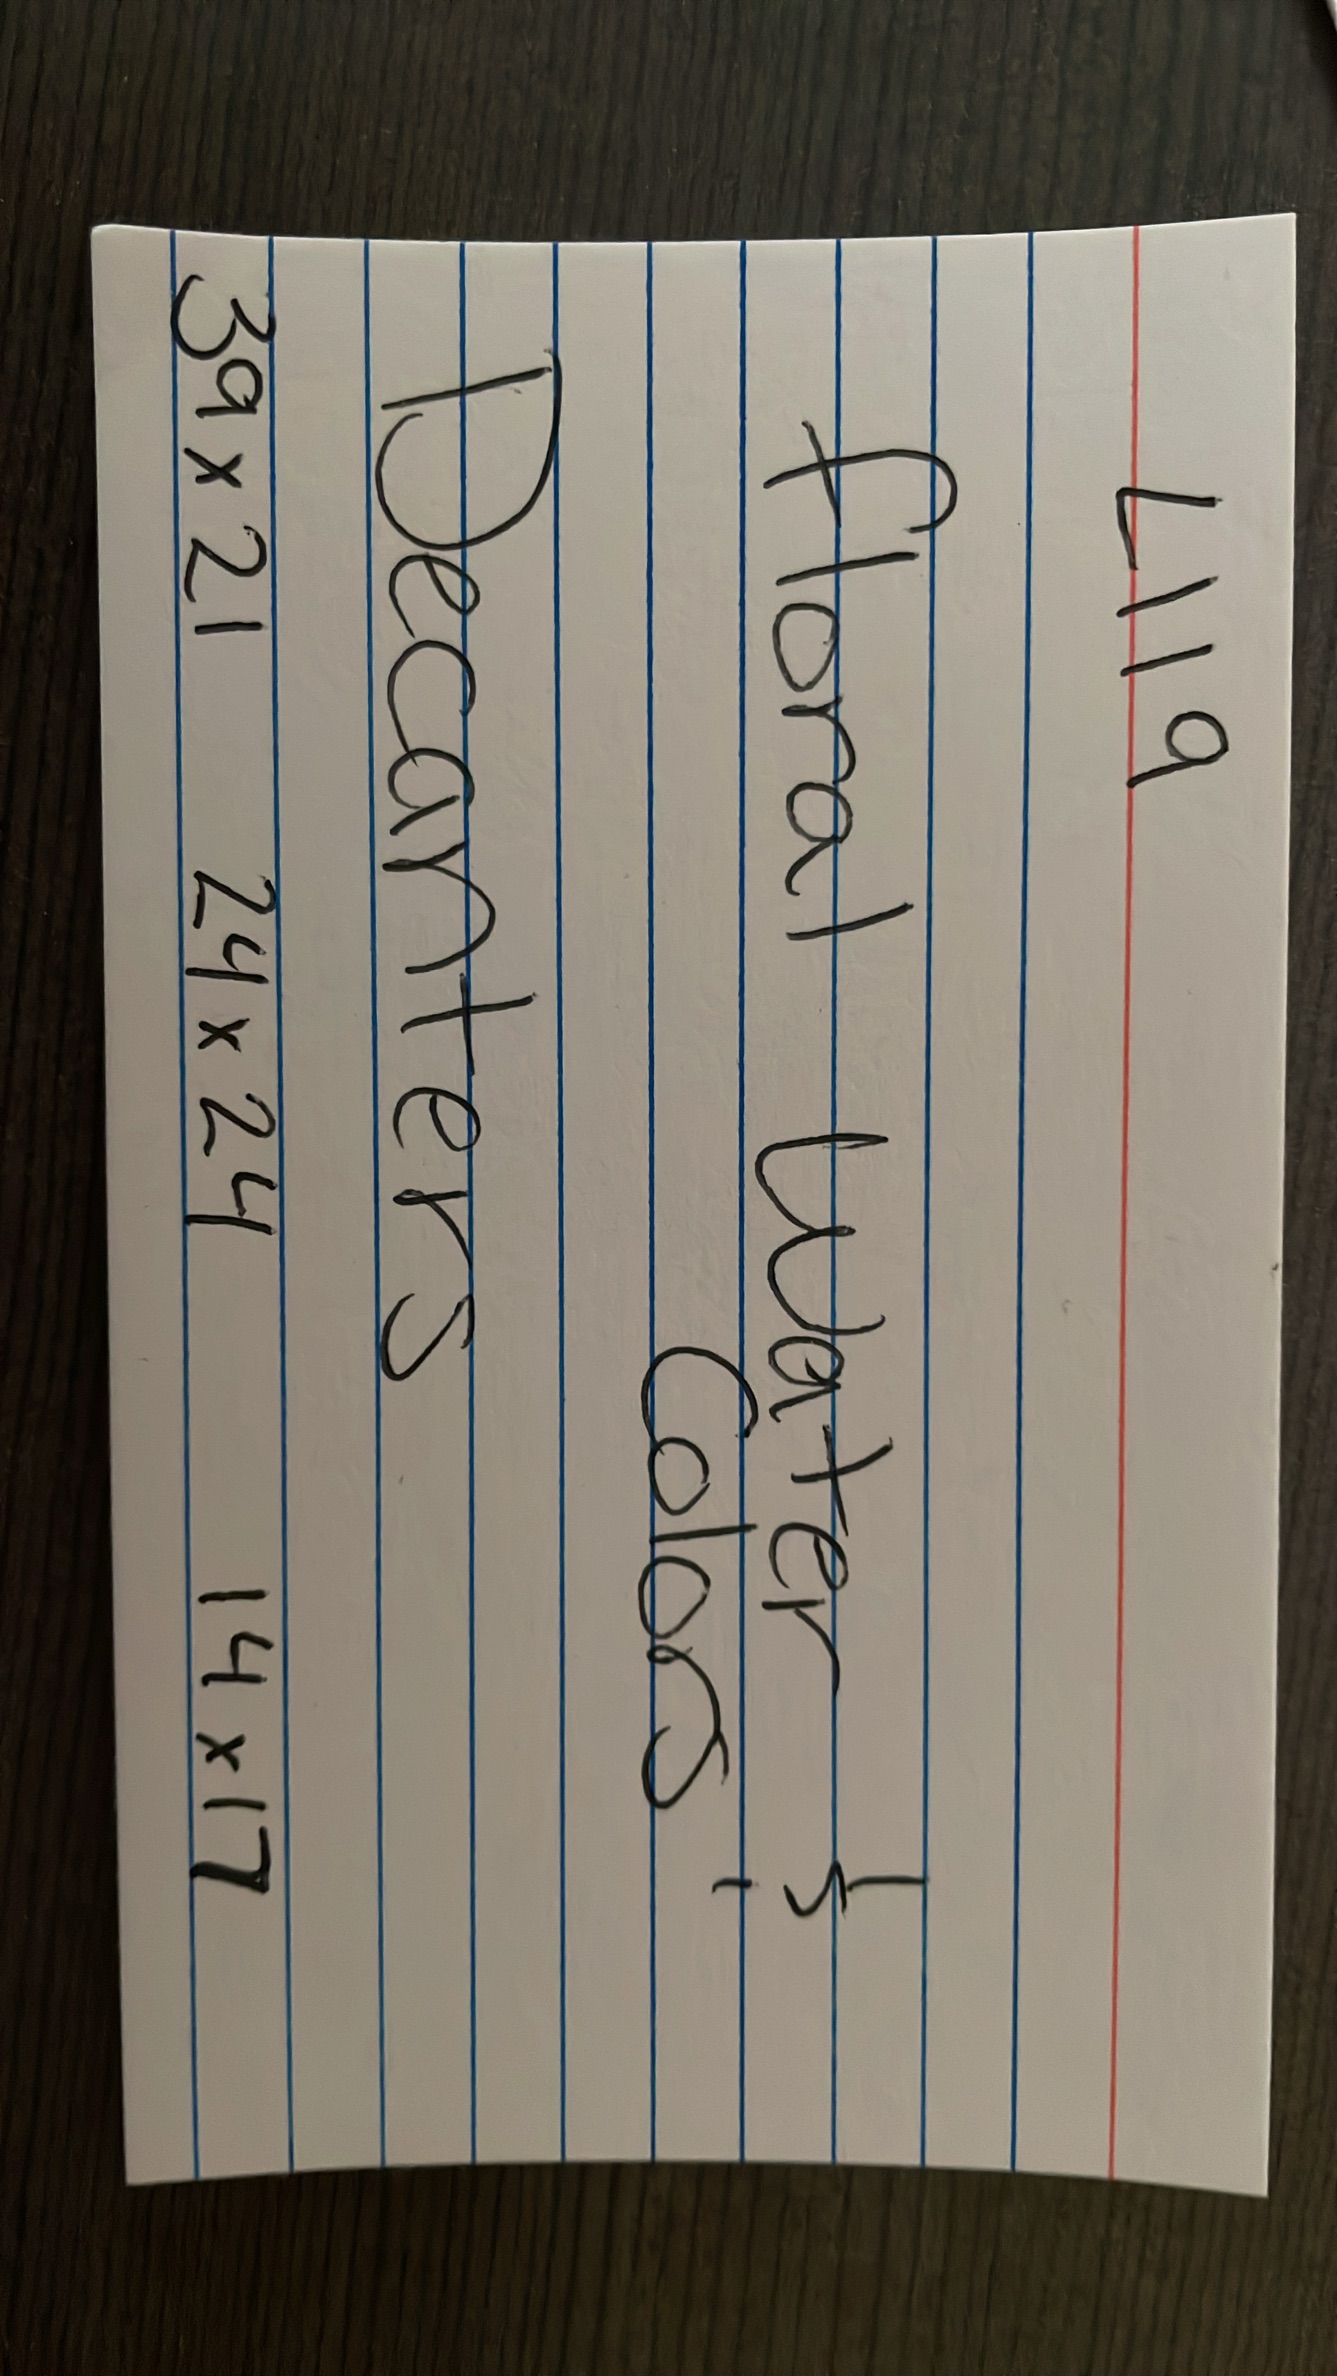 L119
floral Water &
Colors
Decanters
39 x 21 24 x 24 14 x 17